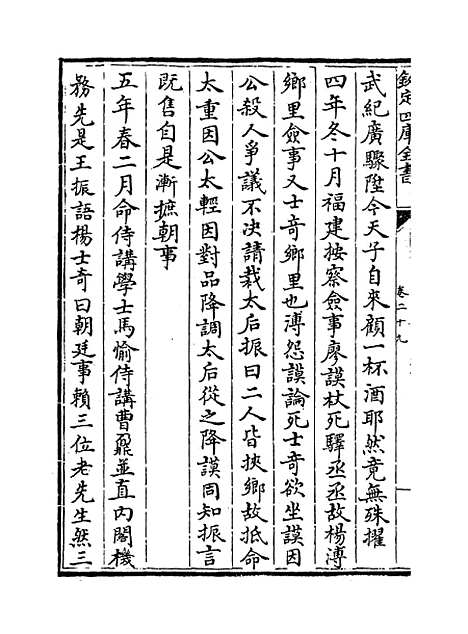 欽定四庫全書
卷二十九
武紀廣驟陞今天子自來顧一杯酒耶然竟無殊擢
四年冬十月福建按察僉事廖謨杖死驛丞丞故楊溥
鄉里僉事又士竒鄉里也溥怨謨論死士竒欲坐謨因
公殺人爭議不决請裁太后振曰二人皆挾鄉故抵命
太重因公太輕因對品降調太后從之降謨同知振言
既售自是漸摭朝事
五年春二月命侍講學士馬愉侍講曹鼐並直内閣機
務先是王振語楊士竒曰朝廷事賴三位老先生然三